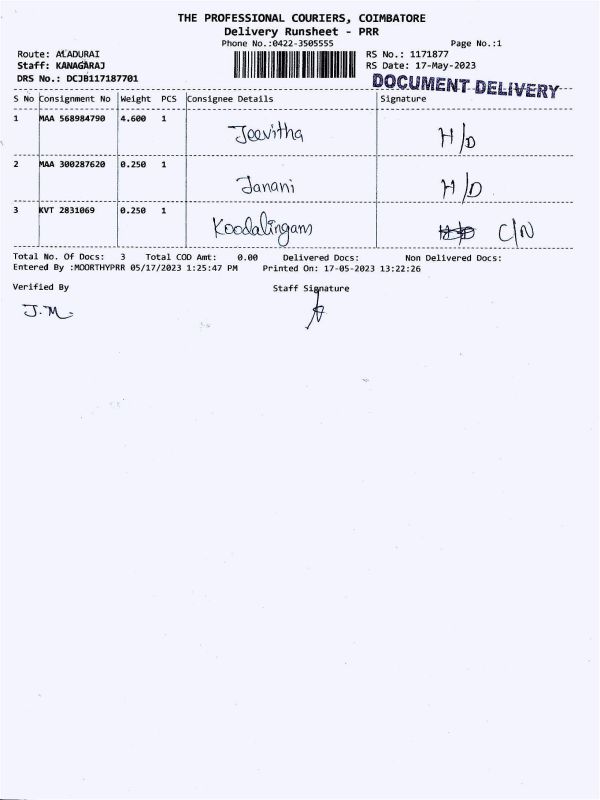 THE PROFESSIONAL COURIERS, COIMBATORE
Delivery Runsheet - PRR
Phone No.:0422-3505555 Page No.:1
Route: ALADURAI RS No.: 1171877
Staff: KANAGARAJ RS Date: 17-May-2023
DRS No.: DCJB117187701 DOCUMENT DELIVERY
S No Consignment No Weight PCS Consignee Details Signature
1 MAA 568984790 4.600 1 Jeevitha H/D
2 MAA 300287620 0.250 1 Janani H/D
3 KVT 2831069 0.250 1 Koodalingam C/N
Total No. Of Docs: 3 Total COD Amt: 0.00 Delivered Docs: Non Delivered Docs:
Entered By :MOORTHYPRR 05/17/2023 1:25:47 PM Printed On: 17-05-2023 13:22:26
Verified By Staff Signature
J.M.